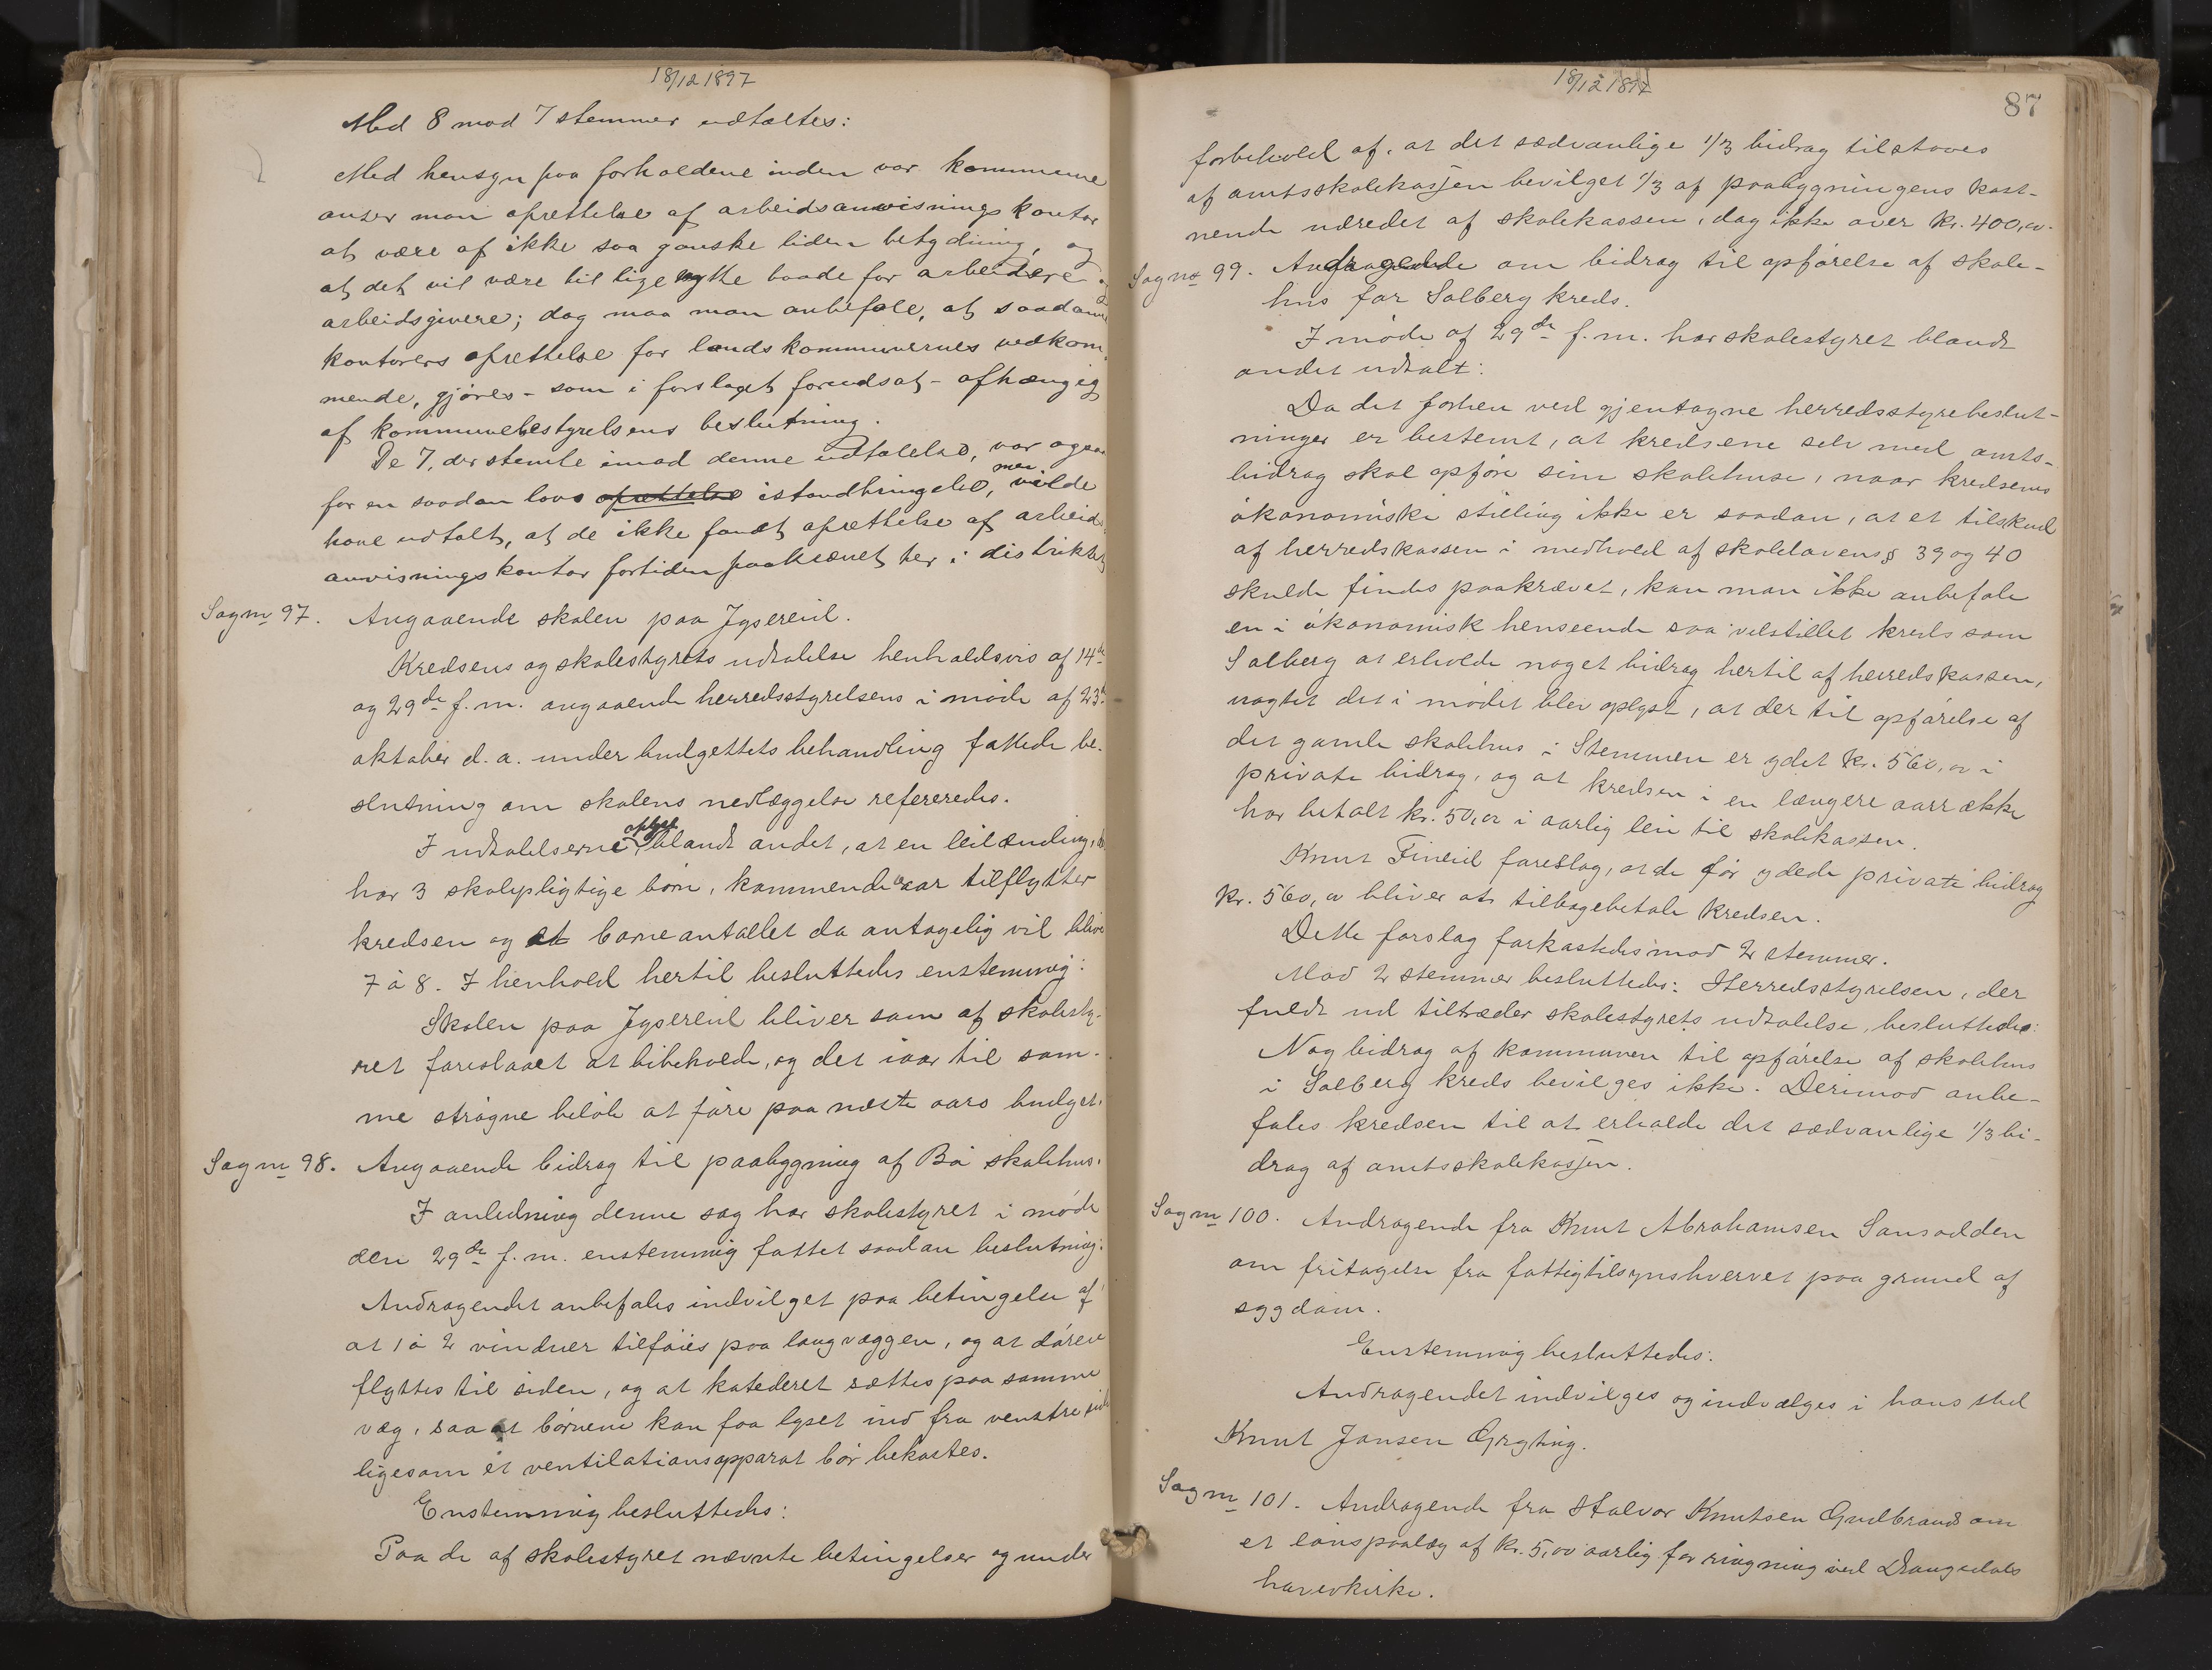 18/12 1897
Med 8 mod 7 stemmer udtaltes:
Med hensyn paa forholdene inden vor kommune
anser man oprettelse af arbeidsanvisningskontor
at være af ikke saa ganske liden betydning, og
at det vil være til lige nytte baade for arbeidere og
arbeidsgivere; dog maa man anbefale, at saadanne
kontorers oprettelse for landskommunernes vedkom-
mende, gjøres - som i forslaget forudsat - afhængig
af kommunebestyrelsens beslutning.
De 7, der stemte imod denne udtalelse, var ogsaa
for en saadan lovs oprettelse istandbringelse, men vilde
have udtalt, at de ikke fandt oprettelse af arbeids
anvisningskontor fortiden paakrævet her i distriktet
Sag no 97. Angaaende skolen paa Jysereid.
Kredsens og skolestyrets udtalelse henholdsvis af 14de
og 29de f. m. angaaende herredsstyrelsens i møde af 23de
oktober d. a. under budgettets behandling fattede be-
slutning om skolens nedlæggelse refereredes.
I udtalelserne oplyst blandt andet, at en leilænding, der
har 3 skolepligtige børn, kommende aar tilflytter
kredsen og at børneantallet da antagelig vil blive
7 à 8. I henhold hertil besluttedes enstemmig:
Skolen paa Jysereid bliver som af skolesty-
ret foreslaaet at bibeholde, og det iaar til sam-
me strøgne beløb at føre paa næste aars budget.
Sag no 98. Angaaende bidrag til paabygning af Bø skolehus.
I anledning denne sag har skolestyret i møde
den 29de f. m. enstemmig fattet saadan beslutning:
Andragendet anbefales indvilget paa betingelse af
at 1 à 2 vinduer tilføies paa langvæggen, og at døren
flyttes til siden, og at katederet sættes paa samme
væg, saa at børnene kan faa lyset ind fra venstre side
ligesom et ventilationsapparat bør bekostes.
Enstemmig besluttedes:
Paa de af skolestyret nævnte betingelser og under
18/12 1897
87
forbehold af, at det sædvanlige 1/3 bidrag tilstaaes
af amtsskolekassen bevilget 1/3 af paabygningens kost-
nende udredet af skolekassen, dog ikke over kr. 400,00.
Sag no 99. Andragende om bidrag til opførelse af skole-
hus for Solberg kreds.
I møde af 29de f. m. har skolestyret blandt
andet udtalt:
Da det forhen ved gjentagne herredsstyrebeslut-
ninger er bestemt, at kredsene selv med amts-
bidrag skal opføre sine skolehuse, naar kredsens
økonomiske stilling ikke er saadan, at et tilskud
af herredskassen i medhold af skolelovens § 39 og 40
skulde findes paakrævet, kan man ikke anbefale
en i økonomisk henseende saa velstillet kreds som
Solberg at erholde noget bidrag hertil af herredskassen,
uagtet det i mødet blev oplyst, at der til opførelse af
det gamle skolehus i Stemmen er ydet kr. 560,00 i
private bidrag, og at kredsen i en længere aarrække
har betalt kr. 50,00 i aarlig leie til skolekassen.
Knut Fineid foreslog, at de før ydede private bidrag
kr. 560,00 bliver at tilbagebetale kredsen.
Dette forslag forkastedes mod 2 stemmer.
Mod 2 stemmer besluttedes: Herredsstyrelsen, der
fuldt ud tiltræder skolestyrets udtalelse, besluttedes:
Nog bidrag af kommunen til opførelse af skolehus
i Solberg kreds bevilges ikke. Derimod anbe-
fales kredsen til at erholde det sædvanlige 1/3 bi-
drag af amtsskolekassen.
Sag no 100. Andragende fra Knut Abrahamsen Sansodden
om fritagelse fra fattigtilsynshvervet paa grund af
sygdom.
Enstemmig besluttedes:
Andragendet indvilges og indvælges i hans sted
Knut Jansen Gryting.
Sag no 101. Andragende fra Halvor Knutsen Gudbrands om
et lønspaalæg af kr. 5,00 aarlig for ringning ved Drangedals
hovedkirke.